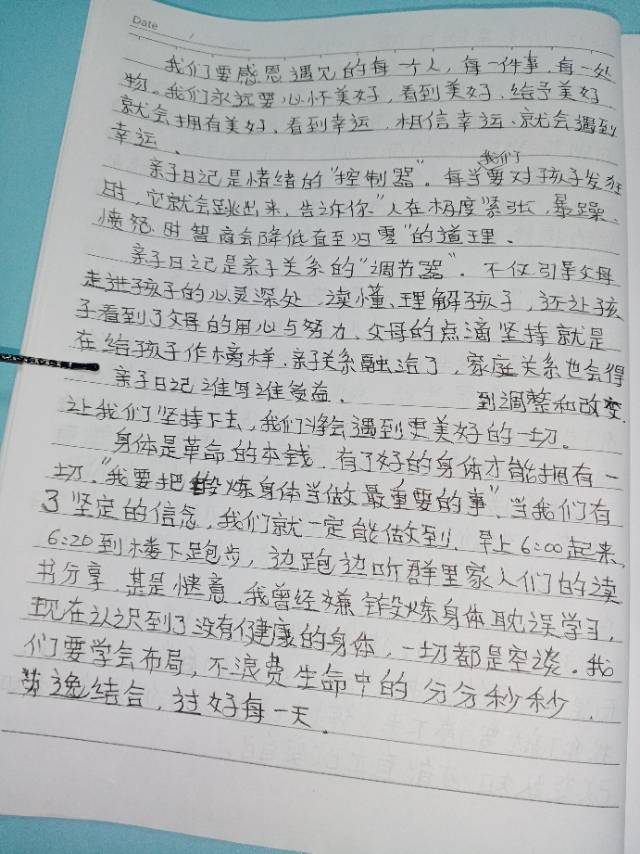 Date
我们要感恩遇见的每一个人，每一件事，每一处
物。我们永远要心怀美好，看到美好，给予美好
就会拥有美好，看到幸运，相信幸运，就会遇到
幸运、
亲子日记是情绪的"控制器"。每当我们要对孩子发狂
时，它就会跳出来，告诉你"人在极度紧张，暴躁、
愤怒时智商会降低直至归零"的道理、
亲子日记是亲子关系的"调节器"。不仅引导父母
走进孩子的心灵深处，读懂、理解孩子，还让孩
子看到了父母的用心与努力、父母的点滴坚持就是
在给孩子作榜样、亲子关系融洽了，家庭关系也会得
到调整和改变.
亲子日记谁写谁受益、
让我们坚持下去，我们将会遇到更美好的一切。
身体是革命的本钱，有了好的身体才能拥有一
切."我要把锻炼身体当做最重要的事"，当我们有
了坚定的信念，我们就一定能做到、早上6:00起来、
6:20到楼下跑步，边跑边听群里家人们的读
书分享，甚是惬意.我曾经嫌锻炼身体耽误学习，
现在认识到了没有健康的身体，一切都是空谈。我
们要学会布局，不浪费生命中的分分秒秒，
劳逸结合，过好每一天。